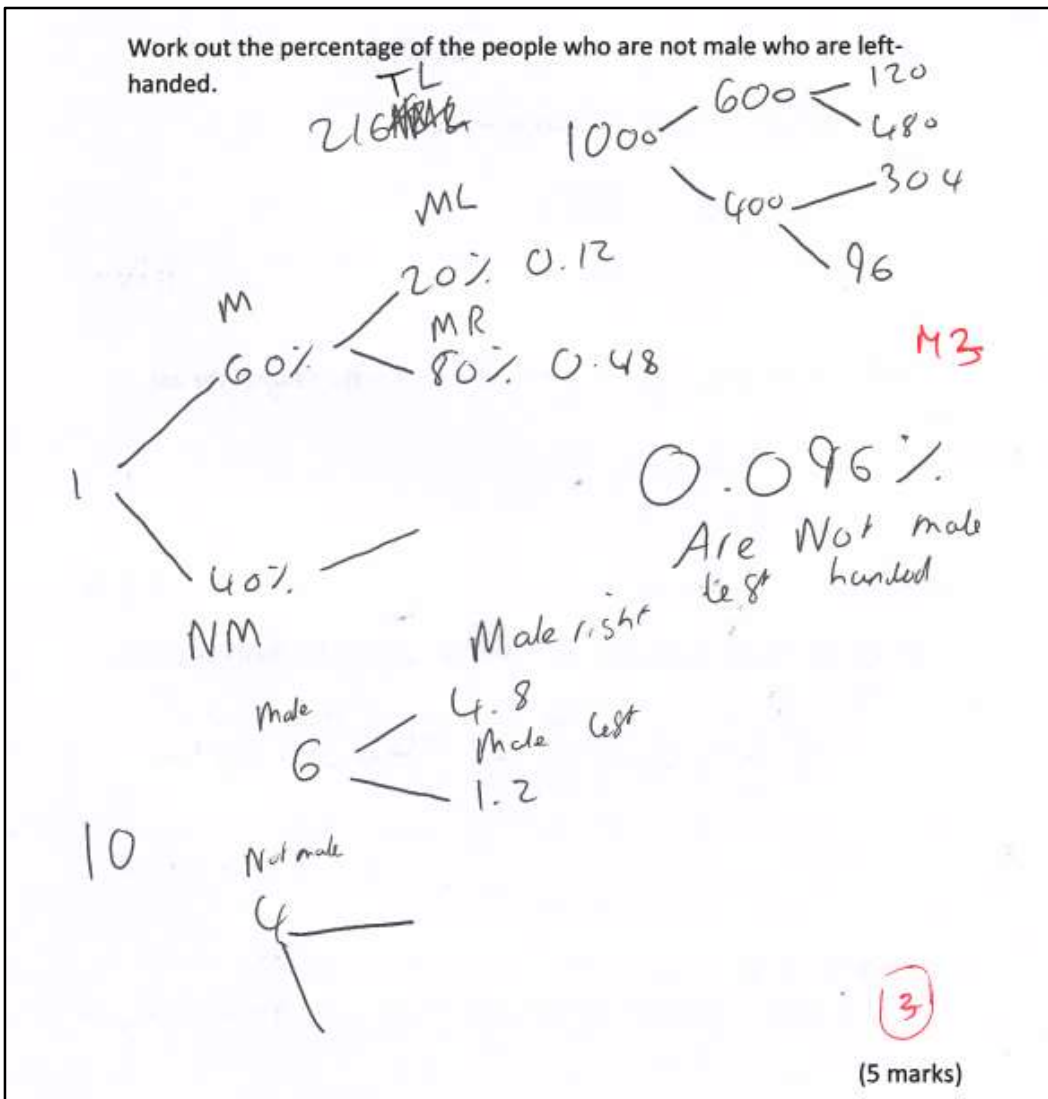 Work out the percentage of the people who are not male who are left-
handed.
TL
216
1000
600
120
480
400
304
96
ML
20% 0.12
M
60%
MR
80% 0.48
M3
1
0.096%
Are Not male
left handed
40%
NM
Male right
4.8
Male
6
Male left
1.2
10
Not male
4
3
(5 marks)